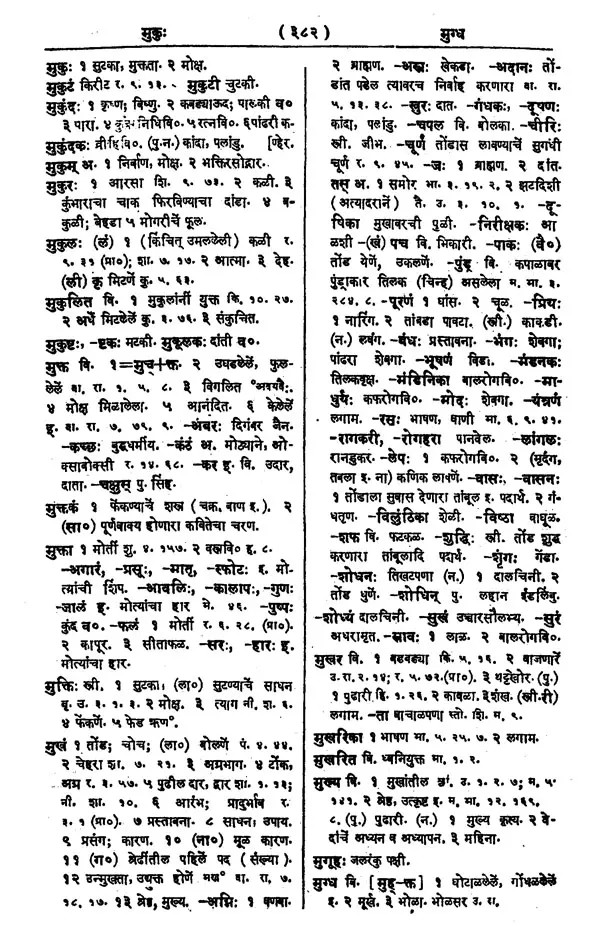 मुकुः
( ३८२ )
मुग्ध
मुकुः १ सुटका, मुक्तता. २ मोक्ष.
मुकुटं किरीट र. ९. १३. मुकुटी चुटकी.
मुकुंदः १ कृष्ण; विष्णु. २ कवड्याऊद; पारुकी व०
३ पारा. ४ कुंकुं निधिवि०. ५ रत्नवि०. ६ पांढरी क-
मुकुंदकः व्रीहिवि०. (पु.न.) कांदा, पलांडु. [ण्हेर.
मुकुम् अ. १ निर्वाण, मोक्ष. २ भक्तिरसोद्गार.
मुकुरः १ आरसा शि. ९. ७३. २ कळी. ३
कुंभाराचा चाक फिरविण्याचा दांडा. ४ ब-
कुळी; बेहडा ५ मोगरीचें फूल.
मुकुलः (लं) १ (किंचित् उमललेली) कळी र.
९. ३१ (प्रा०); शा. ७. १७. २ आत्मा. ३ देह.
(ली) कृ मिटणें कु. ५. ६३.
मुकुलित वि. १ मुकुलांनीं युक्त कि. १०. २७.
२ अर्धे मिटलेलें कु. ३. ७६. ३ संकुचित.
मुकुष्टः, -ष्टकः मटकी. मुकूलकः दांती व०.
मुक्त वि. १=मुच्+क्त. २ उघडलेलें, फुल-
लेलें वा. रा. १. ५. ८. ३ विगलित अवयवैः.
४ मोक्ष मिळालेला. ५ आनंदित. ६ केलेलें
ह. वा. रा. ७. ७५. ९. -अंबरः दिगंबर जैन.
-कच्छः बुद्धधर्मीय. -कंठं अ. मोठ्याने, ओ-
क्साबोक्सी र. १४. ६८. -कर ह. वि. उदार,
दाता. -चक्षुस् पु. सिंह.
मुक्तकं १ फेंकण्याचें शस्त्र (चक्र, बाण इ.). २
(सा०) पूर्णवाक्य होणारा कवितेचा चरण.
मुक्ता १ मोतीं शृ. ४. १५७. २ वस्त्रवि० ह. ८.
-अगारं, -प्रसूः, -मातृ, -स्फोटः इ. मो-
त्यांची शिंप. -आवलिः, -कालापः, -गुणः
-जालं इ. मोत्यांचा हार मे. ४६. -पुष्पः
कुंद व०. -फलं १ मोतीं र. ६. २८, (प्रा०).
२ कापूर. ३ सीताफळ. -सरः, -हारः इ.
मोत्यांचा हार.
मुक्तिः स्त्री. १ सुटका; (ला०) सुटण्याचें साधन
बृ. उ. ३. १. ३. २ मोक्ष. ३ त्याग नी. श. ६.
४ फेंकणें. ५ फेड ऋण°.
मुखं १ तोंड; चोंच; (ला०) बोलणें पं. ४. ४४.
२ चेहरा शा. ७. २१. ३ अग्रभाग. ४ टोंक,
अग्र र. ३. ५७. ५ पुढील दार, द्वार शा. १. १३;
नी. शा. १०. ६ आरंभ; प्रादुर्भाव र.
३. १ (प्रा०). ७ प्रस्तावना. ८ साधन; उपाय.
९ प्रसंग; कारण. १० (ना०) मूळ कारण.
११ (ग०) श्रेढींतील पहिलें पद (संख्या).
१२ उन्मुखता, उद्युक्त होणें मख° वा. रा. ७.
१८. १७. १३ श्रेष्ठ, मुख्य. -अग्निः १ वणवा.
२ ब्राह्मण. -अस्त्रः खेकडा. -अदानः तों
डांत पडेल त्यावरच निर्वाह करणारा वा. रा.
५. १३. ३८. -खुरः दात. -गंधकः, -दूषणः
कांदा, पलांडु. -चपल वि. बोलका. -चीरिः
स्त्री. जीभ. -चूर्णं तोंडास लावण्याचें सुगंधी
चूर्ण र. ९. ४५. -जः १ ब्राह्मण. २ दांत.
तस् अ. १ समोर भा. ३. १५. २. २ झटदिशी
(अत्यादरानें) तै. उ. ३. १०. १. -दू-
षिका मुखावरची पुळी. -निरीक्षकः आ
ळशी -(खं) पच वि. भिकारी. -पाकः (वै०)
तोंड येणें, उकलणें. -पुंड्र वि. कपाळावर
पुंड्राकार तिलक (चिन्ह) असलेला म. भा. ३.
२८४. ८. -पूरणं १ घांस. २ चूळ. -प्रियः
१ नारिंग. २ तांबडा पावटा. (स्त्री.) काकडी.
(न.) लवंग. -बंधः प्रस्तावना. -भंगः शेवगा;
पांढरा शेवगा. -भूषणं विडा. -मंडनकः
तिलकवृक्ष. -मंडिनिका बालरोगवि०. -मा-
धुर्यः कफरोगवि०. -मोदः शेवगा. -यंत्रणं
लगाम. -रसः भाषण, वाणी भा. ६. ९. ४१.
-रागकरी, -रोगहरा पानवेल. -लांगलः
रानडुकर. -लेपः १ कफरोगवि०. २ (मृदंग,
तबला इ. ना) कणिक लावणें. -वासः, -वासनः
१ तोंडाला सुवास देणारा तांबूल इ. पदार्थ. २ गं-
धतृण. -विलुंठिका शेळी. -विष्ठा वाघूळ.
-शफ वि. फटकळ. -शुद्धिः स्त्री. तोंड शुद्ध
करणारा तांबूलादि पदार्थ. -शृंगः गेंडा.
-शोधनः तिखटपणा (न.) १ दालचिनी. २
तोंड धुणें. -शोधिन् पु. लहान ईडलिंबू.
-शोध्यं दालचिनी. -सुखं उच्चारसौलभ्य. -सुरं
अधरामृत. -स्रावः १ लाळ. २ बालरोगवि०.
मुखर वि. १ बडबड्या कि. ५. १६. २ वाजणारें
उ. रा. २. १४; र. ५. ७२.(प्रा०). ३ थट्टेखोर. (पु.)
१ पुढारी हि. १. २६. २ कावळा. ३ शंख. (स्त्री. री)
लगाम. -ता वाचाळपणा स्तो. शि. म. ९.
मुखरिका १ भाषण मा. ५. २५. ७. २ लगाम.
मुखरित वि. ध्वनियुक्त मा. १. २.
मुख्य वि. १ मुखांतील छां. उ. १. २. ७; म. ५.
१४१. २ श्रेष्ठ, उत्कृष्ट इ. म. भा. १२. १६९.
८. (पु.) पुढारी. (न.) १ मुख्य कृत्य. २ वे-
दांचें अध्ययन व अध्यापन. ३ महिना.
मुगूहः जलरंकु पक्षी.
मुग्ध वि. [मुह्-क्त] १ घोटाळलेलें, गोंधळलेलें
इ. २ मूर्ख. ३ भोळा. भोळसर उ. रा.